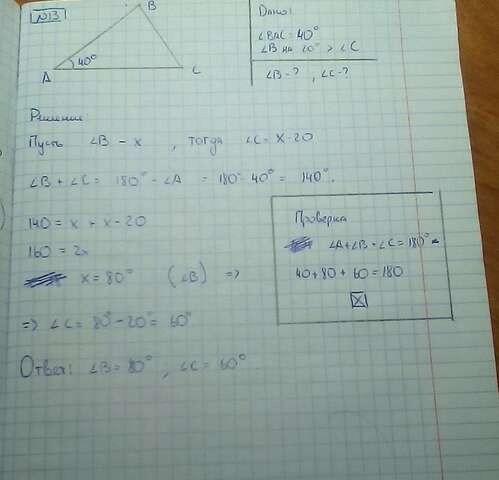 №13
B
A 40° C
Дано:
∠BAC = 40°
∠B на 20° > ∠C
∠B - ? , ∠C - ?
Решение
Пусть ∠B - x , тогда ∠C = x-20
∠B + ∠C = 180° - ∠A = 180° - 40° = 140°.
140 = x + x - 20
160 = 2x
x = 80° (∠B) =>
=> ∠C = 80° - 20° = 60°
Ответ: ∠B = 80° , ∠C = 60°
Проверка
∠A+∠B+∠C = 180°
40+80+60=180